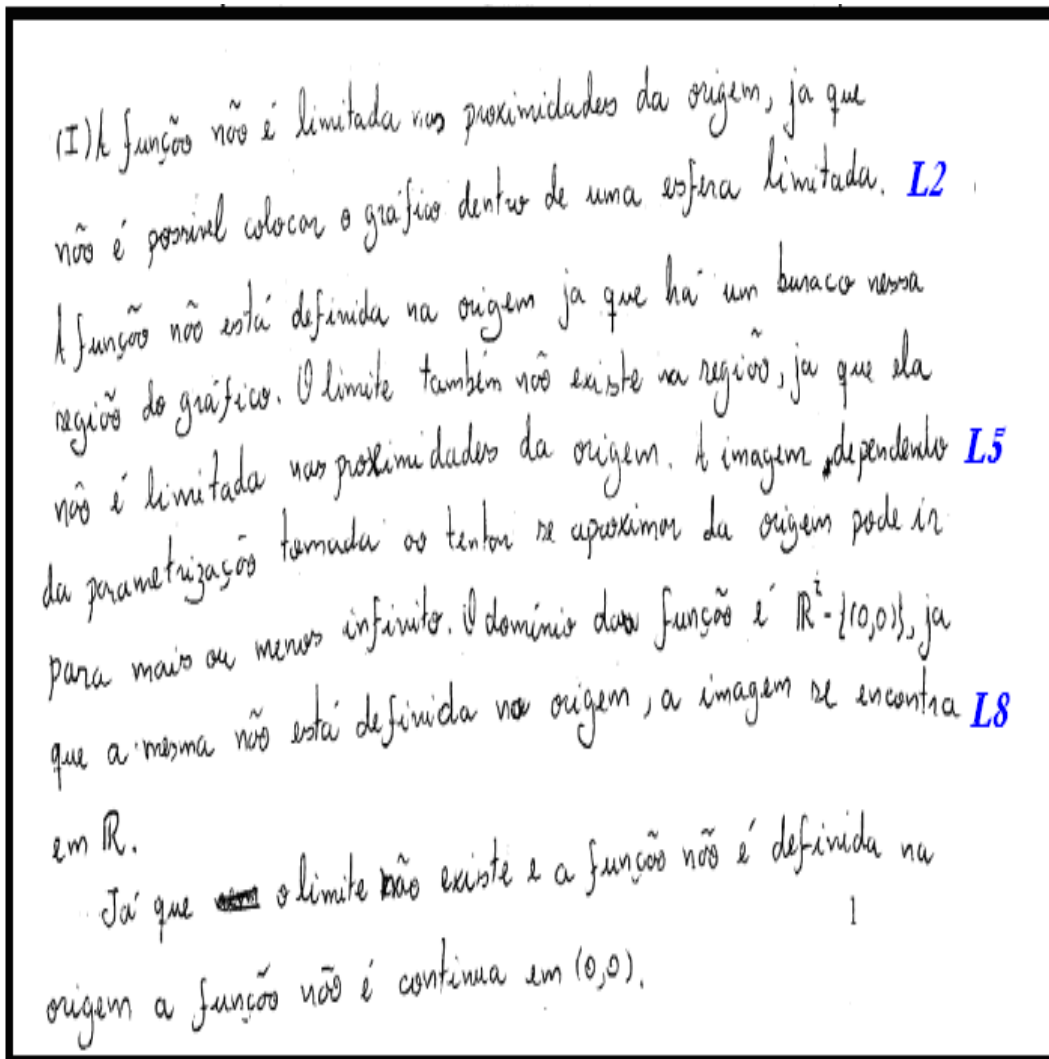 (I) A função não é limitada nas proximidades da origem, ja que
não é possivel colocar o gráfico dentro de uma esfera limitada. L2
A função não está definida na origem ja que há um buraco nessa
região do gráfico. O limite também não existe na região, ja que ela
não é limitada nas proximidades da origem. A imagem, dependendo L5
da parametrização tomada ao tentar se aproximar da origem pode ir
para mais ou menos infinito. O domínio da função é ℝ²-{(0,0)}, ja
que a mesma não está definida na origem, a imagem se encontra L8
em ℝ.
Já que o limite não existe e a função não é definida na
origem a função não é continua em (0,0).